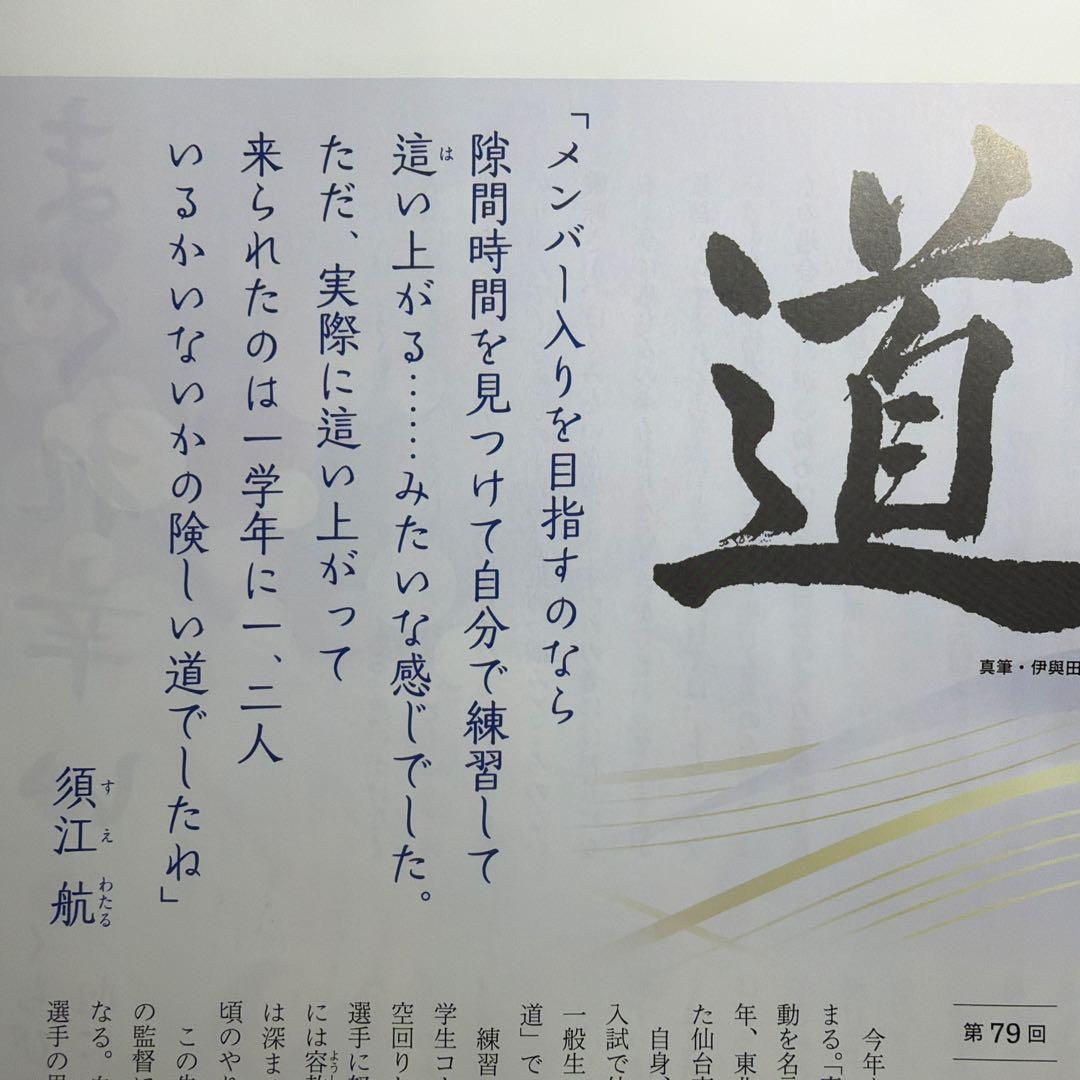 道
真筆・伊與田
「メンバー入りを目指すのなら
隙間時間を見つけて自分で練習して
這い上がる……みたいな感じでした。
は
ただ、実際に這い上がって
来られたのは一学年に一、二人
いるかいないかの険しい道でしたね」
須江 航
すえ わたる
第79回
今年
まる。
動を名
年、東北
た仙台
自身、
入試で
一般生
道」で
練習
学生コ
空回り
選手に
には容
よう
は深ま
頃のや
この
の監督に
なる。
選手の